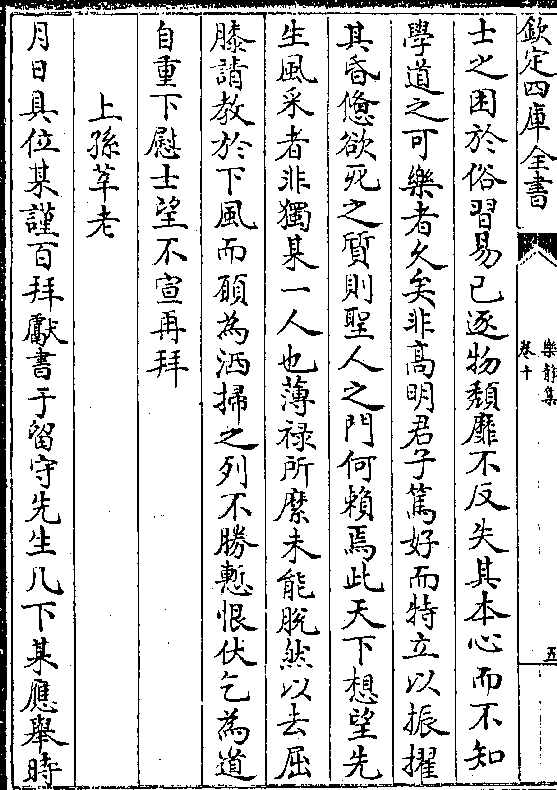 欽定四庫全書
樂靜集
卷十
五
士之困於俗習易已逐物頽靡不反失其本心而不知
學道之可樂者久矣非高明君子篤好而特立以振擢
其昏憊欲死之質則聖人之門何賴焉此天下想望先
生風采者非獨某一人也薄禄所縻未能脫然以去屈
膝請教於下風而願為洒掃之列不勝慙恨伏乞為道
自重下慰士望不宣再拜
上孫莘老
月日具位某謹百拜獻書于留守先生几下某應舉時